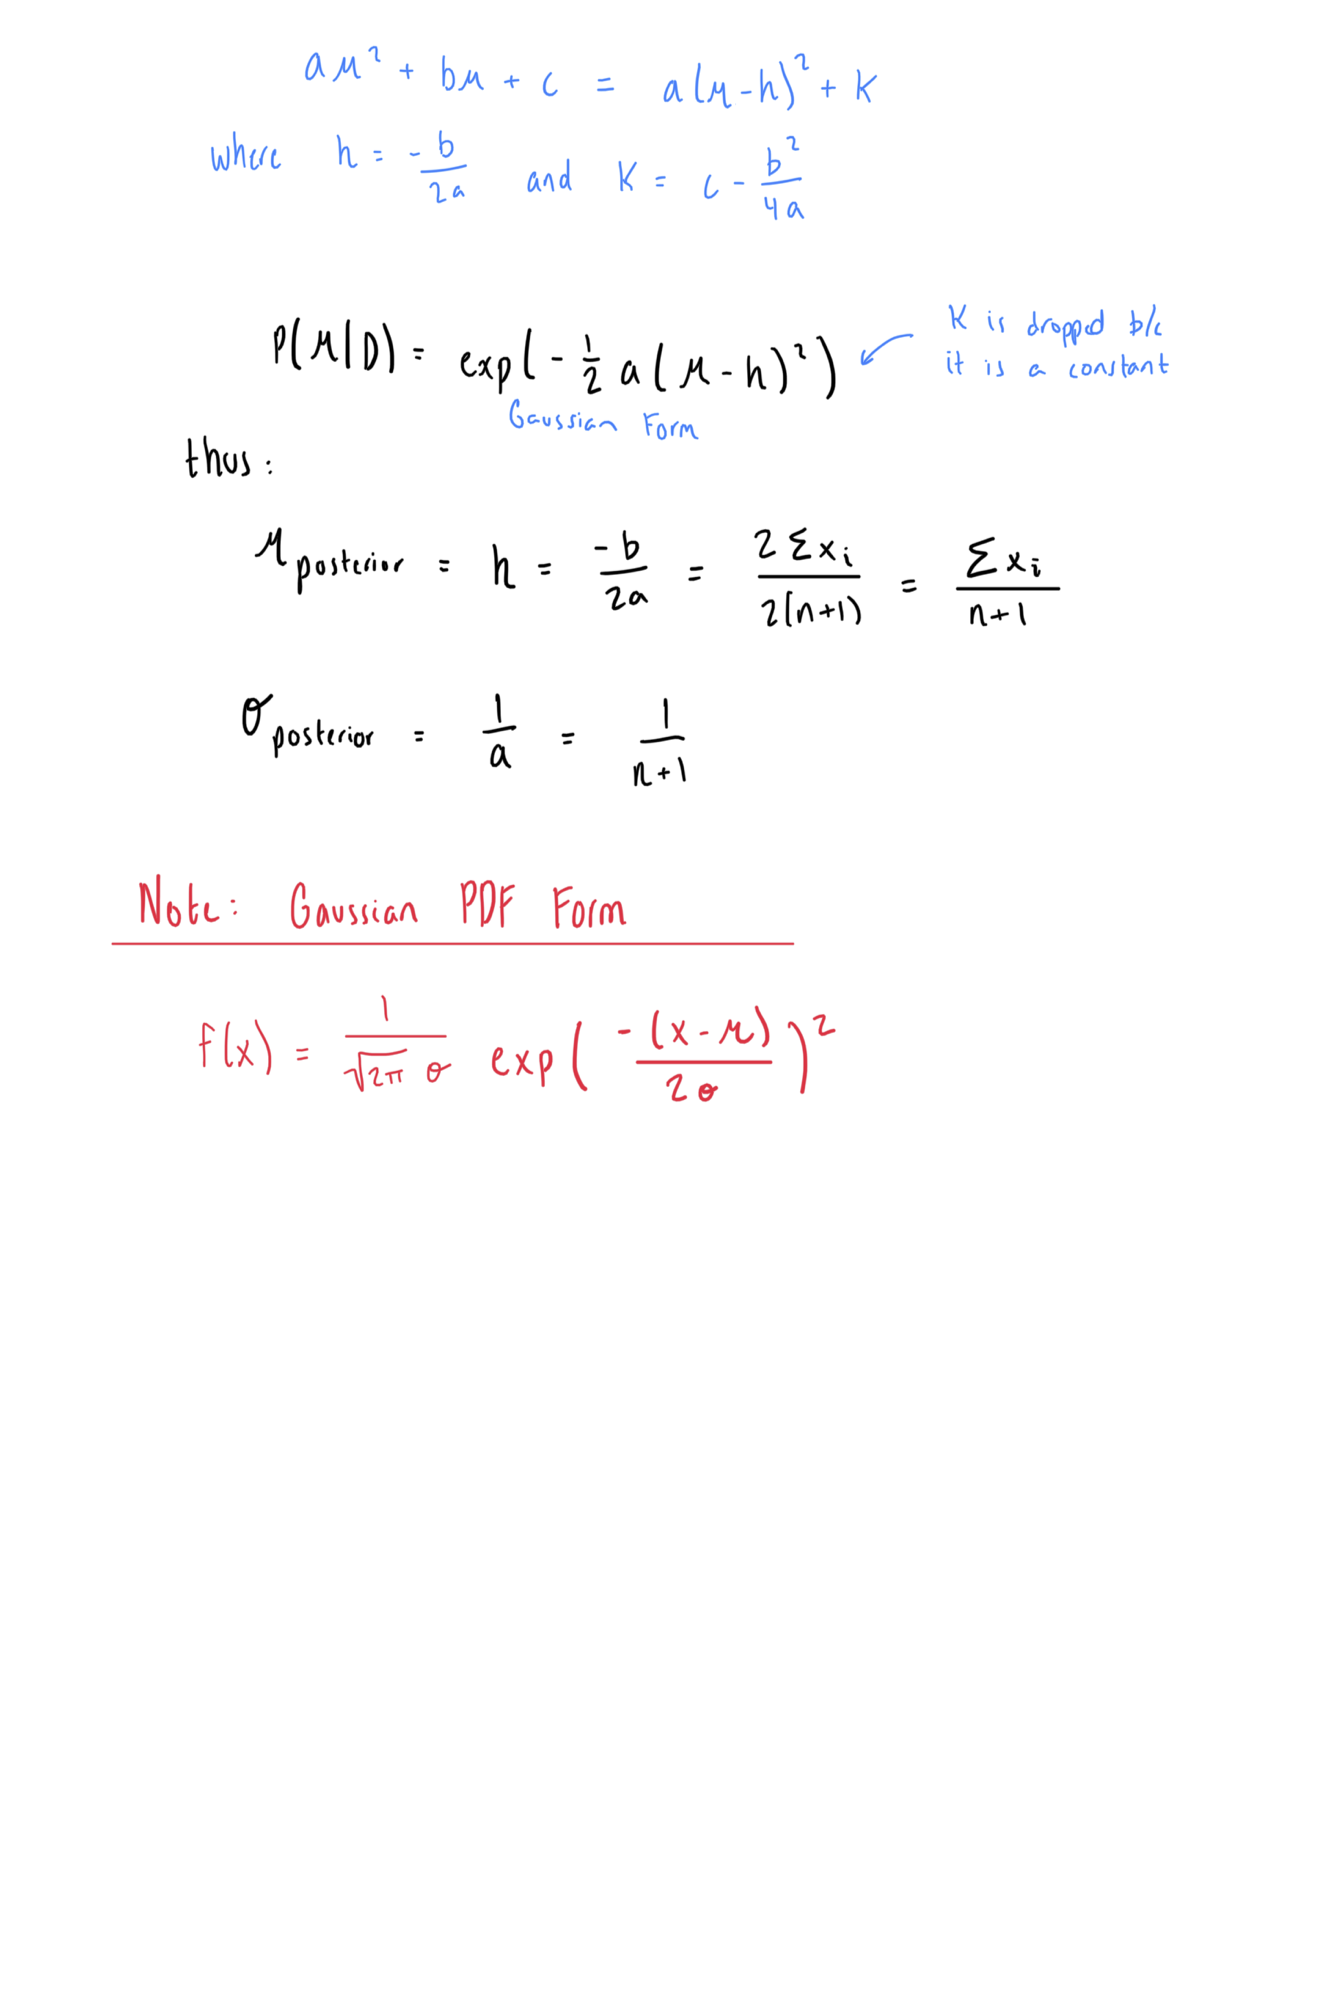 aμ² + bμ + c = a(μ-h)² + K
where h = -b/2a and K = c - b²/4a
P(μ|D) = exp(-1/2 a(μ-h)²)
K is dropped b/c
it is a constant
Gaussian Form
thus:
μ posterior = h = -b/2a = 2Σxᵢ/2(n+1) = Σxᵢ/n+1
σ posterior = 1/a = 1/n+1
Note: Gaussian PDF Form
f(x) = 1/√2π σ exp(-(x-μ)/2σ)²